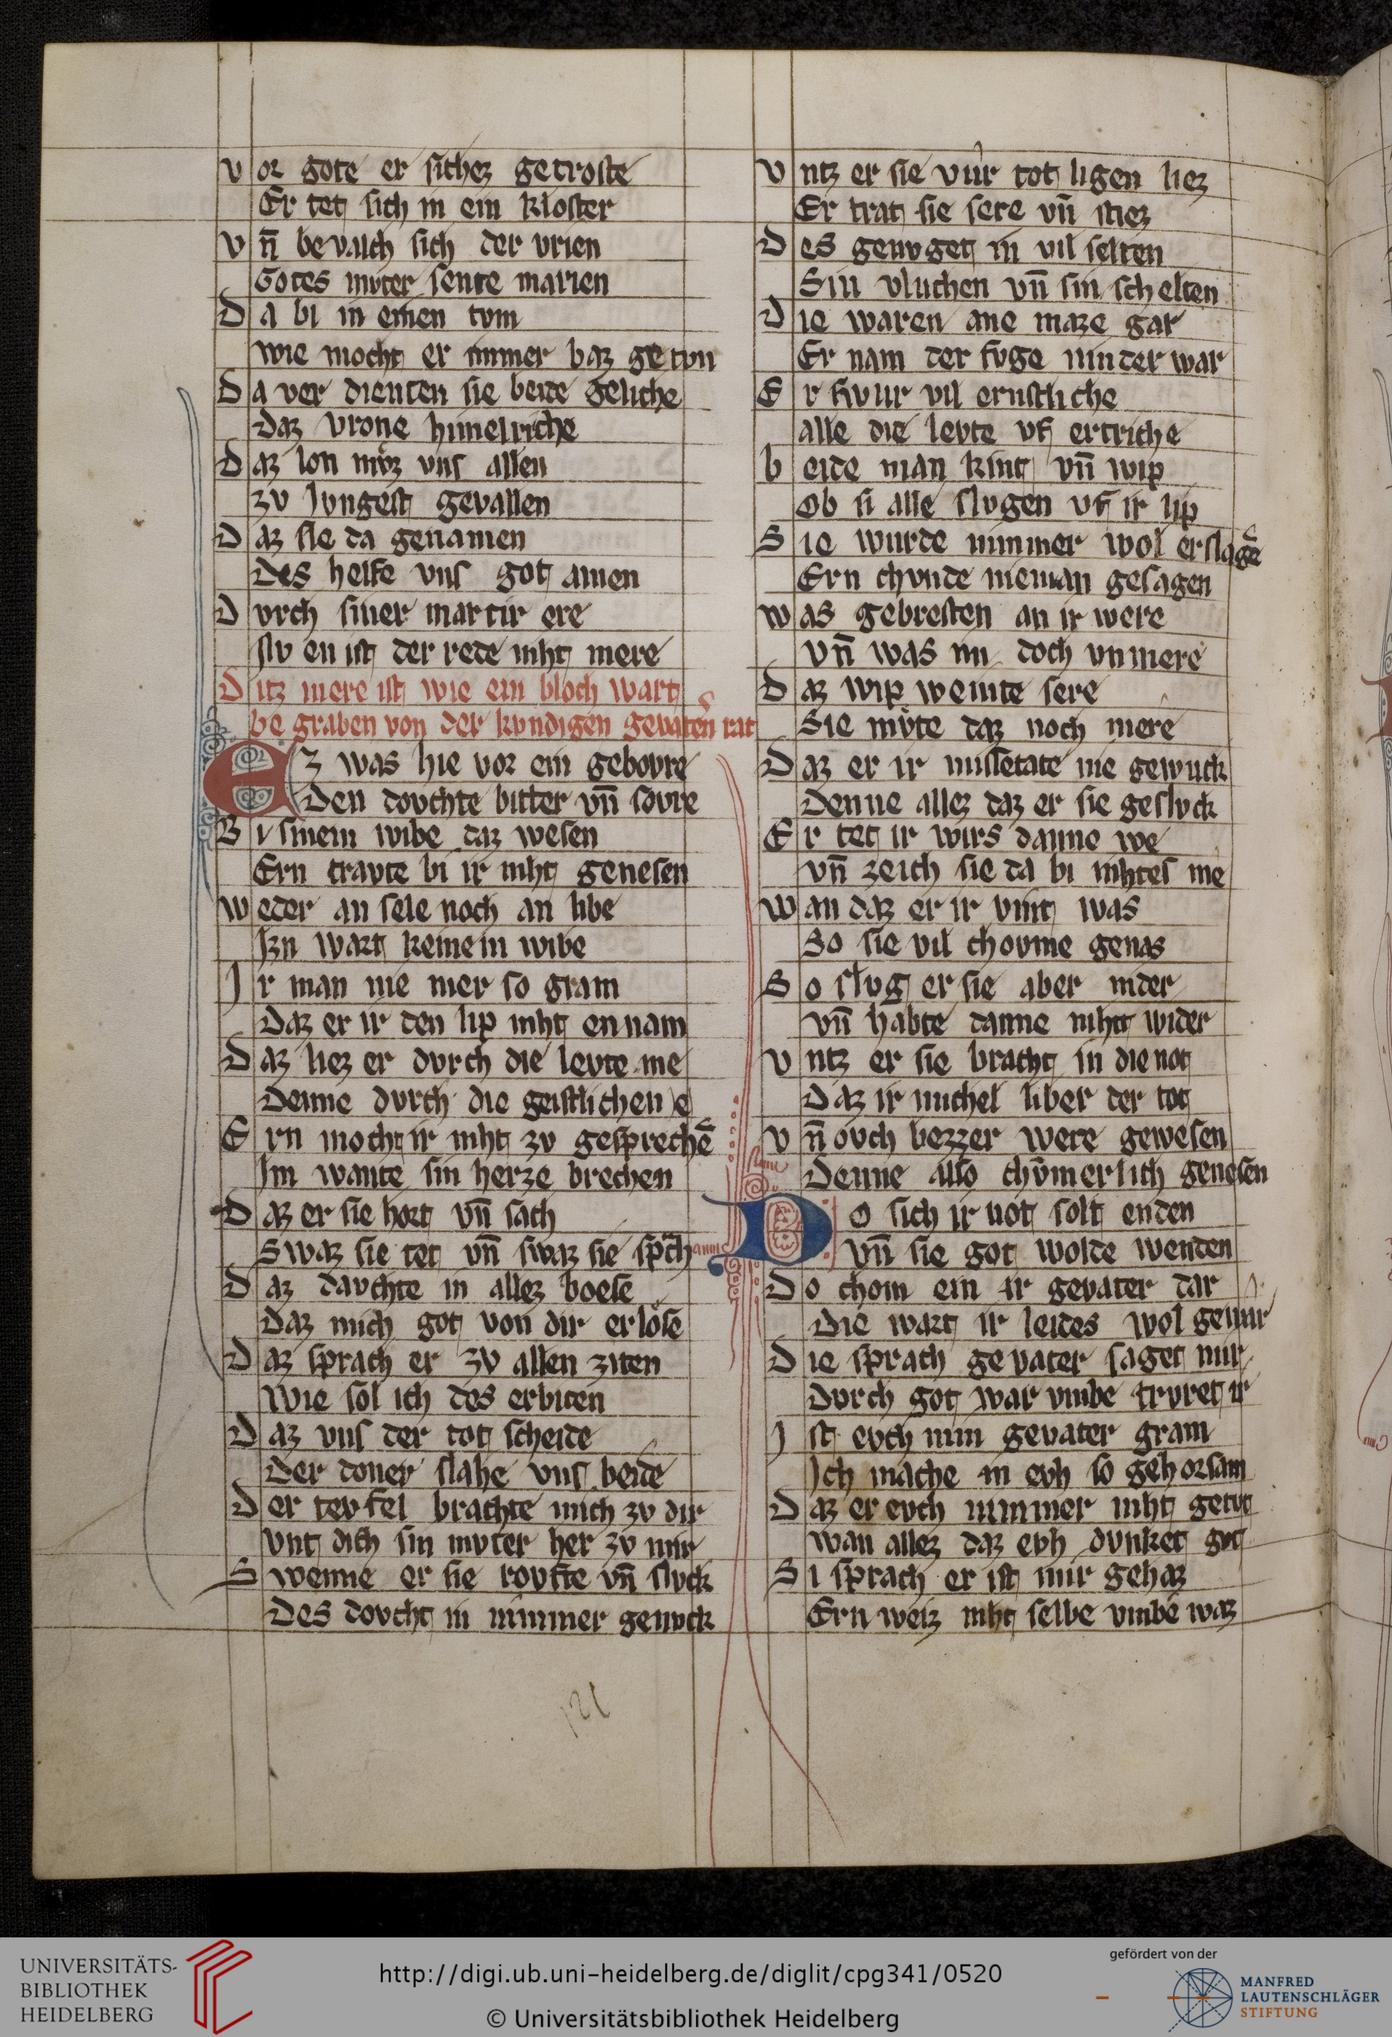 Vor gote er sichez getroste
Er tet sich in ein kloster
Vn̄ bevalch sich der vrien
Gotes mvter sente marien
Da bi in einen tvm
wie mocht er immer baz getvn
Da ver dienten sie beide geliche
Daz vrone himelriche
Daz lon mvͦz vns allen
zv Jvngest gevallen
Daz sie da genamen
Des helfe vns got amen
Dvrch siner martir ere
Nv en ist der rede niht mere
Ditz mere ist wie ein bloch wart
be graben von der kvndigen gevatern̄ rat
Ez was hie vor ein gebovre
Den dovchte bitter vn̄ sovre
Bi sinem wibe daz wesen
Ern travte bi ir niht genesen
weder an sele noch an libe
Izn wart keinem wibe
Jr man nie mer so gram
Daz er ir den lip niht ennam
Daz liez er dvrch die levte me
Denne dvrch die geistlichen e
Ern mocht ir niht zv gesprechē
Im wante sin herze brechen
Daz er sie hort vn̄ sach
Swaz sie tet vn̄ swaz sie sp̄ch
Daz davchte in allez boese
Daz mich got von dir erlöse
Daz sprach er zv allen ziten
Wie sol ich des erbiten
Daz vns der tot scheide
Der doner slahe vns beide
Der tevfel brachte mich zv dir
Vnt dich sin mvter her zv mir
Swenne er sie rovfte vn̄ slvck
Des dovcht in nimmer genvck
Vntz er sie vur tot ligen liez
Er trat sie sere vn̄ stiez
Des genvget in vil selten
Sin vluchen vn̄ sin schelten
Die waren ane maze gar
Er nam der fvge ninder war
Er swur vil ernstliche
alle die levte vf ertriche
beide man kint vn̄ wip
Ob si alle slvgen vf ir lip
Sie wurde nimmer wol erslagē
Ern chvnde nieman gesagen
was gebresten an ir were
Vn̄ was im doch vnmere
Daz wip weinte sere
Sie mvͤte daz noch mere
Daz er ir missetate nie gewuck
Denne allez daz er sie geslvck
Er tet ir wirs danne we
vn̄ zeich sie da bi nihtes me
wan daz er ir vint was
So sie vil chovme genas
So slvg er sie aber nider
vn̄ habte danne niht wider
Vntz er sie bracht in die not
Daz ir michel liber der tot
Vn̄ ovch bezzer were gewesen
Denne also chvmerlich genesen
Do sich ir not solt enden
Vn̄ sie got wolde wenden
Do chom ein ir gevater dar
Die wart ir leides wol gewar
Die sprach gevater saget mir
Dvrch got war vmbe trvret ir
Jst evch min gevater gram
Ich mache in evh so gehorsam
Daz er evch nimmer niht getvt
wan allez daz evh dvnket gvt
Si sprach er ist mir gehaz
Ern weiz niht selbe vmbe waz
UNIVERSITÄTS-
BIBLIOTHEK
HEIDELBERG
http://digi.ub.uni-heidelberg.de/diglit/cpg341/0520
© Universitätsbibliothek Heidelberg
gefördert von der
MANFRED
LAUTENSCHLÄGER
STIFTUNG